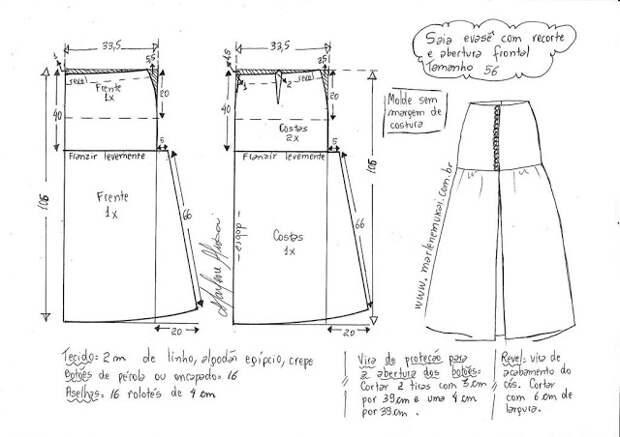 33,5
33,5
Saia evasê com recorte
e abertura frontal
Tamanho 56
Molde sem
margem de
costura
revel
Frente
1x
20
40
105
revel
2
Costas
2x
20
40
105
5
5
Franzir levemente
Franzir levemente
Frente
1x
66
- dobra -
Costas
1x
66
20
20
www.marlenemukai.com.br
Tecido = 2 m de linho, algodão egípcio, crepe
Botões de pérola ou encapado = 16
Aselhas = 16 rolotês de 4 cm
Vira de proteção para
a abertura dos botões =
Cortar 2 tiras com 3 cm
por 39 cm e uma 4 cm
por 39 cm.
Revel = vira de
acabamento do
cós. Cortar
com 6 cm de
largura.